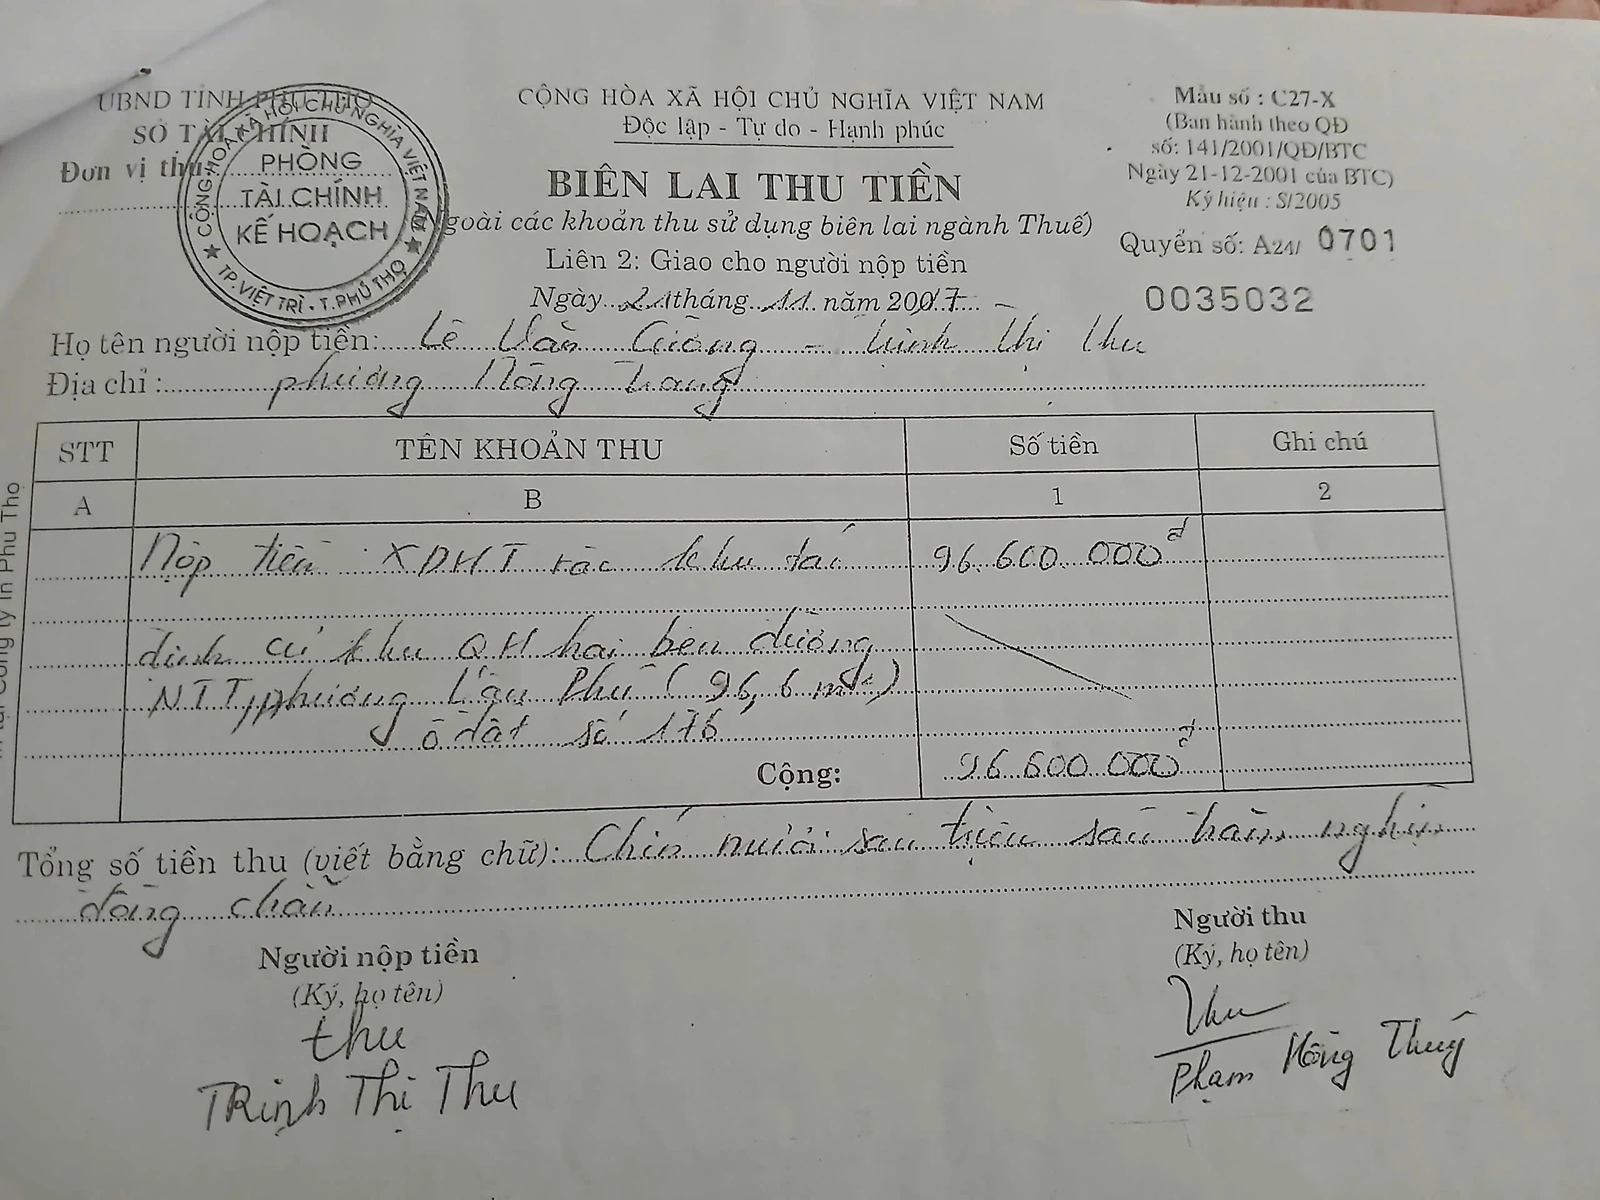 UBND TỈNH PHÚ THỌ
SỞ TÀI CHÍNH
Đơn vị thu
CỘNG HÒA XÃ HỘI CHỦ NGHĨA VIỆT NAM
PHÒNG
TÀI CHÍNH
KẾ HOẠCH
TP. VIỆT TRÌ - T. PHÚ THỌ
CỘNG HÒA XÃ HỘI CHỦ NGHĨA VIỆT NAM
Độc lập - Tự do - Hạnh phúc
BIÊN LAI THU TIỀN
goài các khoản thu sử dụng biên lai ngành Thuế)
Liên 2: Giao cho người nộp tiền
Ngày 21 tháng 11 năm 2007
Mẫu số : C27-X
(Ban hành theo QĐ
số: 141/2001/QĐ/BTC
Ngày 21-12-2001 của BTC)
Ký hiệu : S/2005
Quyển số: A24/ 0701
0035032
Họ tên người nộp tiền: Lê Văn Cường - Trịnh Thị Thu
Địa chỉ : phường Nông Trang
STT TÊN KHOẢN THU Số tiền Ghi chú
A B 1 2
Nộp tiền XDHT các khu tái 96.600.000đ
định cư khu QH hai bên đường
NTT, phường Gia Phú (96,6 m²)
ô đất số 176
Cộng: 96.600.000đ
Tổng số tiền thu (viết bằng chữ): Chín mươi sáu triệu sáu trăm nghìn
đồng chẵn
Người nộp tiền
(Ký, họ tên)
thu
Trịnh Thị Thu
Người thu
(Ký, họ tên)
Phạm Hồng Thuý
Công ty In Phú Thọ